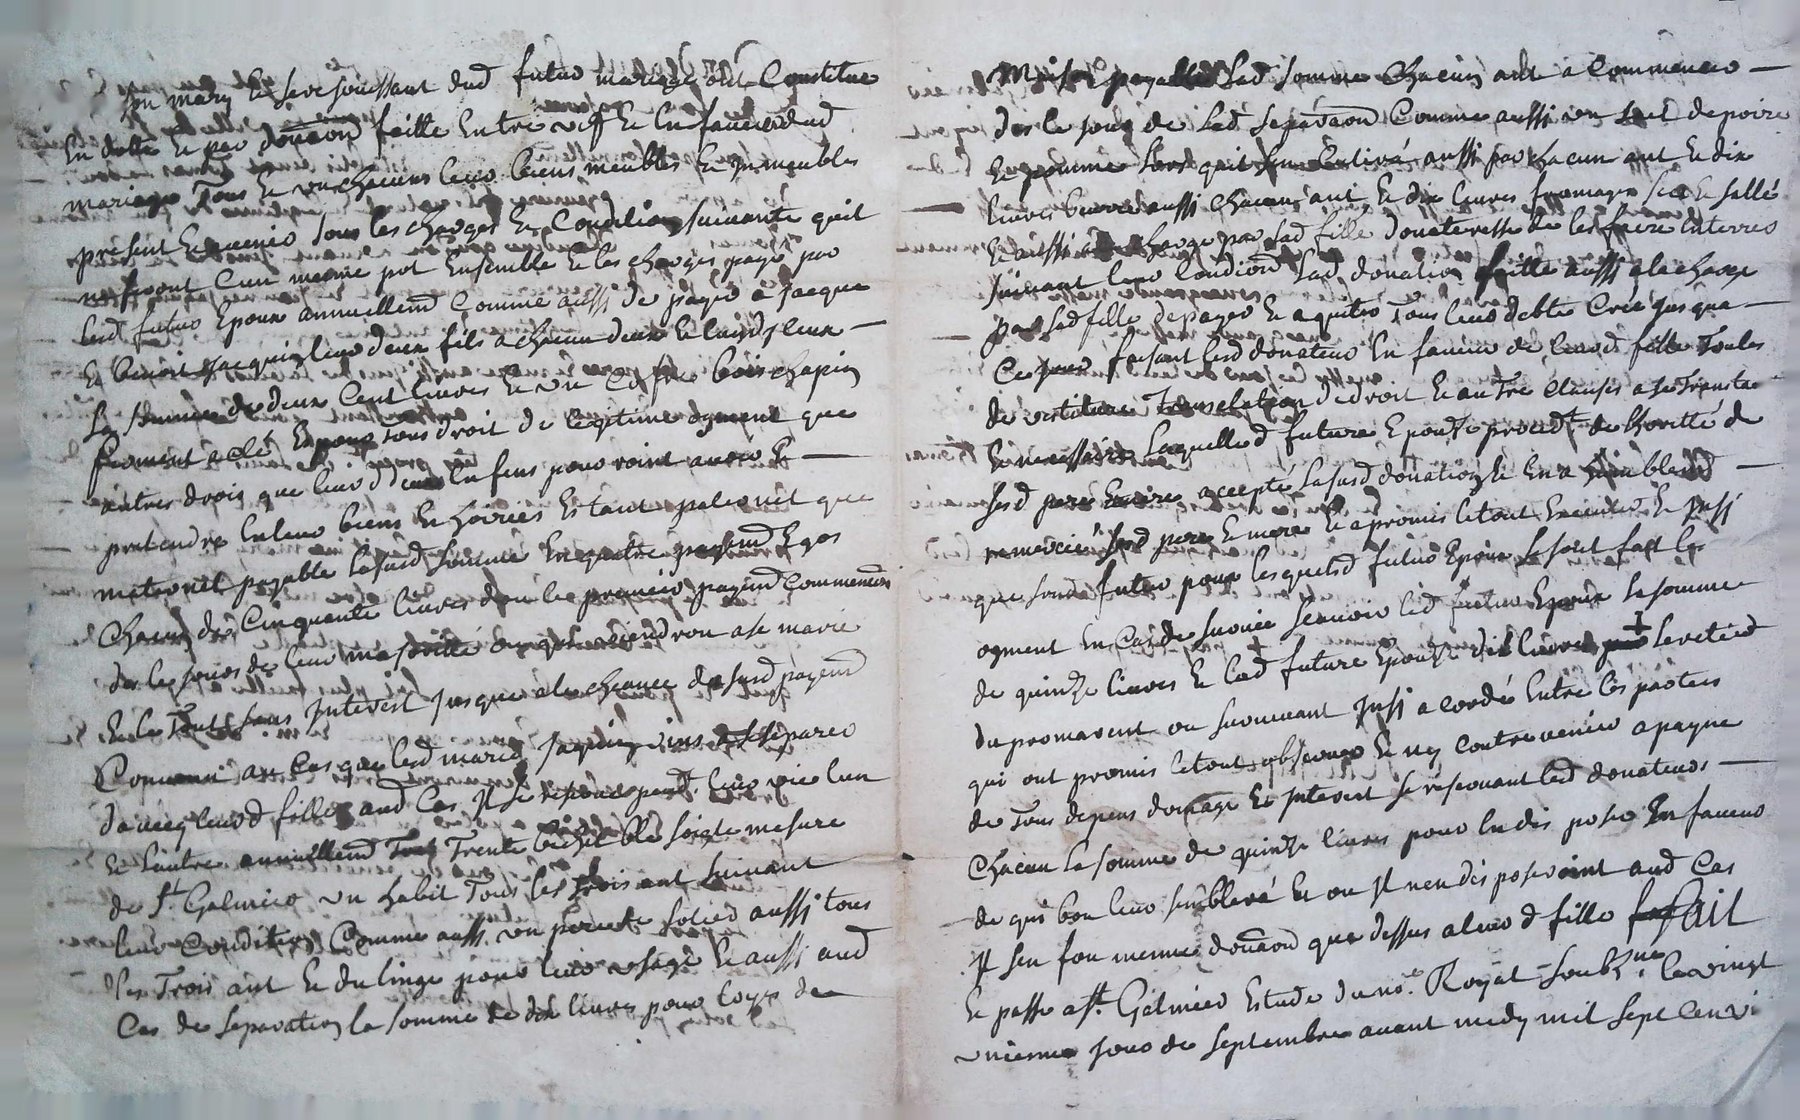 son mary le seve jouissant dud futur mariage ont Constitue
En dotte Et par donaon faitte Entre vifs Et En faveur dud
mariage Tous Et vn chacuns leurs biens meubles Et Jmmeubles
present Et avenir sous les charges Et Condition suivante quil
ne feront Cun meme pot Ensemble Et les charges payé par
lesd futur Epoux annuellemd Comme aussi de payer a Jacque
Et Benoit Jacquin leur deux fils a chacun deux
la somme de deux Cent livres Et vn Cofre bois chapin
fermant a clé Et pour Tous droit de legitime ogment que
autres drois que leurd enfens pouroint avoir Et
pretendre En leur biens Et hoiries Et tant paternel que
maternel payable lasusd somme En quatre payemd Egos
Chacun de Cinquante livres don le premier payemd Commencera
des les jours de leur majorité ou qui viendron a se marie
Et le Tout sans Jnterest jusque a la cheance desusd payemd
Convenu au Cas que lesd mariés Jaquin vins a se separer
davecq leurd fille aud Cas Jl se reserve pendt leur vie lun
Et lautre annuellemd Trente bichet blé seigle mesure
de St. Galmier vn habit Tous les trois ant suivant
leur Condition Comme aussi vn paire de solied aussi tous
les Trois ant Et du linge pour leur usage Et aussi aud
Cas de separation la somme de dix livres pour loyer de
Maison payable lad somme Chacun ant a Commencer
des le jour de lad separaon Comme aussi vn sac de poire
Et pomme lors quil sen Cutira aussi par chacun ant Et dix
livres beurre aussi chacun ant Et dix livres fromages sec Et sallé
Et aussi a la charge par lad fille donateresse de les faire Enterrer
suivant leur Condiond lad donation faitte aussi a la charge
par lad fille de payer Et aquiter Tous leur debte Créé jusqua
Ce jour faisant lesd donateur En faveur de leurd fille Toutes
de vestiture Translation de droit Et autre Clauses a se Translat
Et necessaire laquelled future Epouze procedt de lhotorité de
sesd pere Et mere accepté lasusd donation Et En a humblemd
remercié sesd pere Et mere Et a promis letout Executer Et Jnsi
que sond futur pour lesquelsd futur Epoux se sont fait les
ogment En Cas de survie scavoir led futur Epoux la somme
de quinze livres Et lad future Epouze dix livres par + le retierd
du premourent au survivant Jnsi acordé Entre les parties
qui ont promis letout observer Et ny contrevenir apayne
de Tous depens domage Et Jnterest se reservant lesd donateurs
Chacun la somme de quinze livres pour En dis poser En faveur
de qui bon leur semblera Et ou Jl nen dis poseroint aud Cas
Jl sen fon meme donaond que dessus a leurd fille fait
Et passe a St. Galmier Estude du nore. Royal soubzné. le vingt
vnieme jour de septembre avant midy mil sept Cen vi